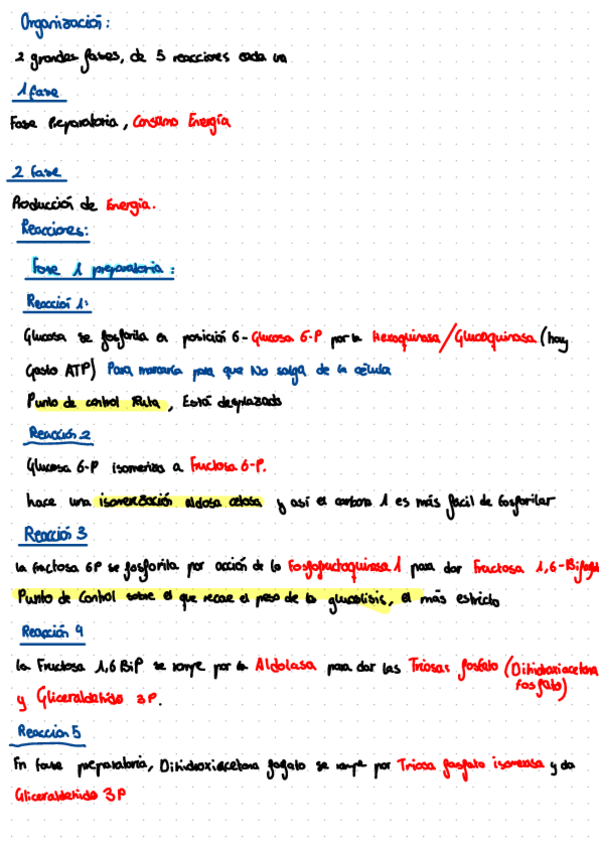 Organización:
2 grandes fases, de 5 reacciones cada una
1 fase
Fase Preparatoria, Consumo Energía
2 Fase
Producción de Energía.
Reacciones:
Fase 1 preparatoria:
Reacción 1:
Glucosa se fosforila en posición 6 - Glucosa 6-P por la Hexoquinasa/Glucoquinasa (hay
Gasto ATP) Para marcarla para que No salga de la célula
Punto de control Ruta, Está desplazado
Reacción 2
Glucosa 6-P isomeriza a Fructosa 6-P.
hace una isomerización aldosa cetosa y así el carbono 1 es más fácil de fosforilar
Reacción 3
la fructosa 6P se fosforila por acción de la Fosfofructoquinasa 1 para dar Fructosa 1,6-Bifosfa
Punto de Control sobre el que recae el peso de la glucolisis, el más estricto
Reacción 4
la Fructosa 1,6 BiP se rompe por la Aldolasa para dar las Triosas fosfato (Dihidroxiacetona
fosfato)
y Gliceraldehido 3P.
Reaccion 5
En fase preparatoria, Dihidroxiacetona fosfato se rompe por Triosa fosfato isomerasa y da
Gliceraldehido 3P